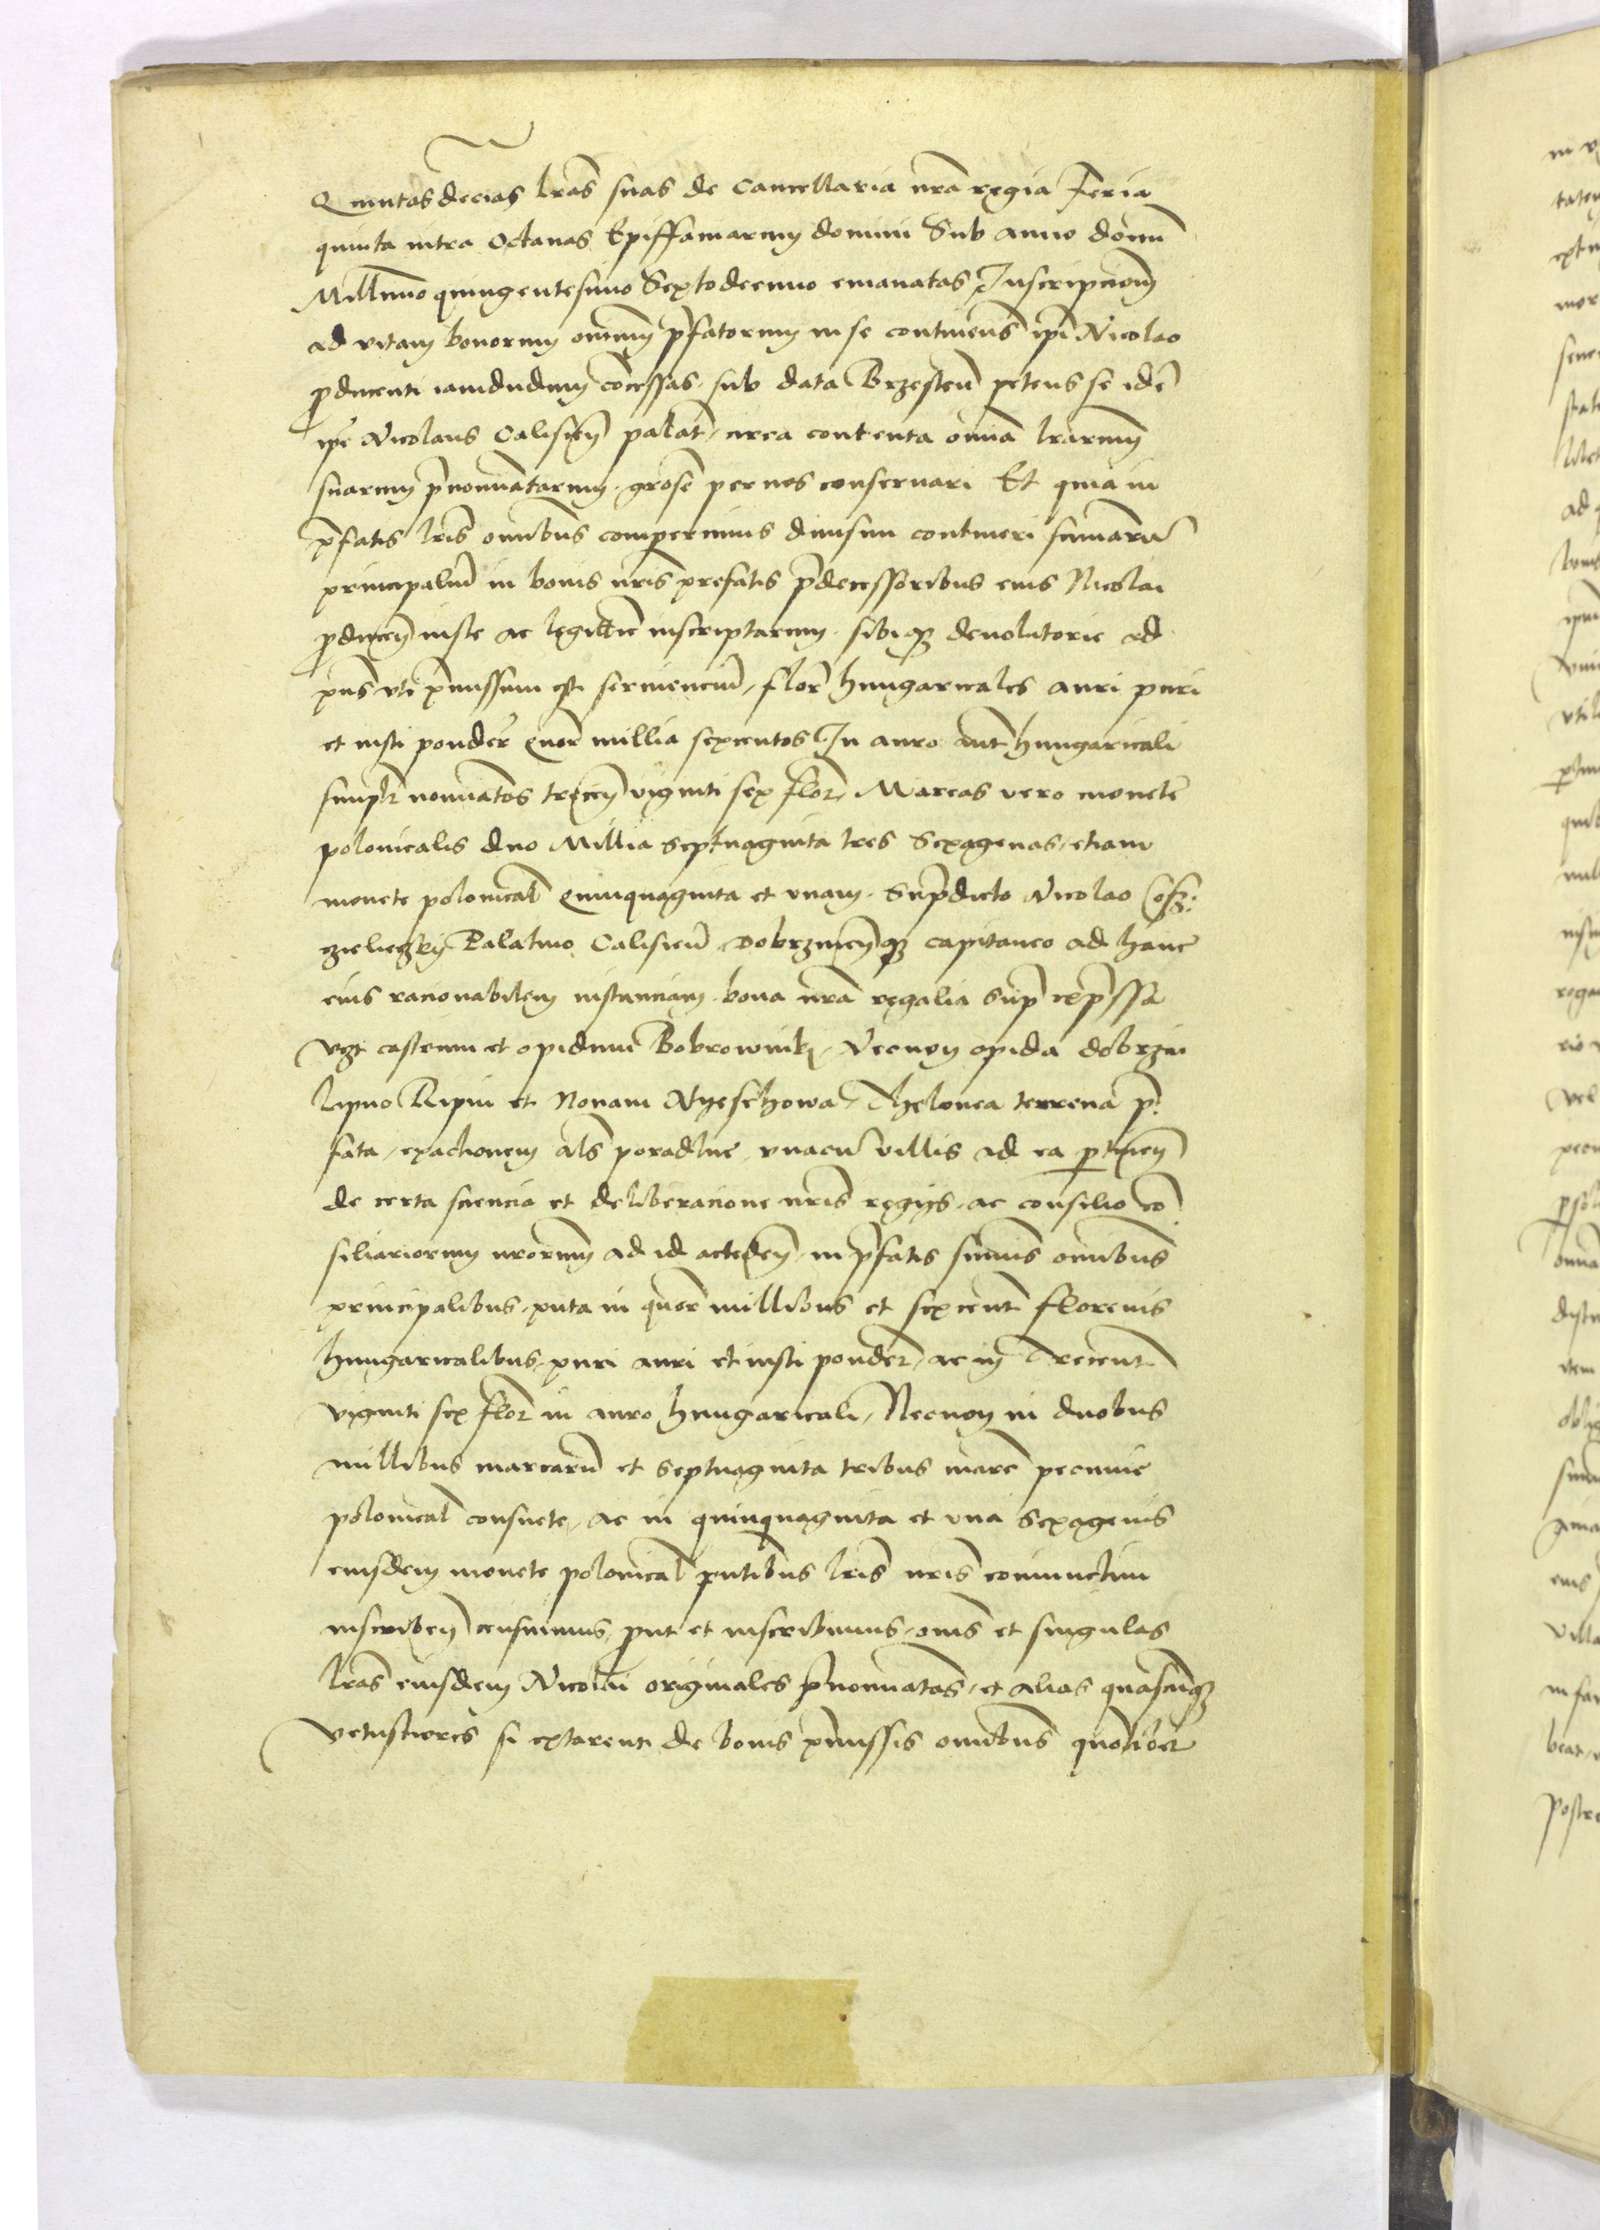 Quintasdecias lras suas de Cancellaria nra regia Feria
quinta intra Octauas Epiffaniarum domini Sub anno domi
Millimo quingentesimo Sextodecimo emanatas Inscripcionem
ad vitam bonorum omnium pfatorum in se continens ipi Nicolao
producenti iamdudum concessas sub data Brzesten petens se ide
ipe Nicolaus Calisien palat circa contenta omnia lrarum
suarum pnominatarum grose per nos conseruari Et quia in
pfatis lris omnibus comperimus diuisim contineri summaru
principaliu in bonis nris prefatis pdecessoribus eius Nicolai
producen iuste ac legittie inscriptarum sibiq deuolutorie ad
pns vti pmissum est seruienciu flor hungaricales auri puri
et iusti ponder quor millia sexcentos In auro aut hungaricali
simplr nominatos trecen viginti sex flor Marcas vero monete
polonicalis duo Millia septuaginta tres Sexagenas etiam
monete polonical quinquaginta et vnam Supdicto Nicolao Cosz
czielieczkij Palatino Calisien Dobrzinenq capitaneo ad hanc
eius racionabilem instanciam bona nra regalia sup expssa
vzt castrum et opidum Bobrowniki Necnon opida dobrzin
lipno Ripin et Nouam Nijeschowa Thelonea terrena p
fata exactionem als poradlne vnacu villis ad ea ptinen
de certa sciencia et deliberacione nris regijs ac consilio co
siliariorum nrorum ad id acceden in pfatis summis omnibus
principalibus puta in quor millibus et sexcent florenis
hungaricalibus puri auri et iusti ponder ac in Trecent
viginti sex flor in auro hungaricali Necnon in duobus
millibus marcaru et septuaginta tribus marc pecunie
polonical consuete ac in quinquaginta et vna sexagenis
eiusdem monete polonical pntibus lris nris coniunctim
inscriben censuimus prout et inscribimus omes et singulas
lras eiusdem Nicolai originales pnominatas et alias quascunq
vetustiores si extarent de bonis pmissis omnibus quolibet